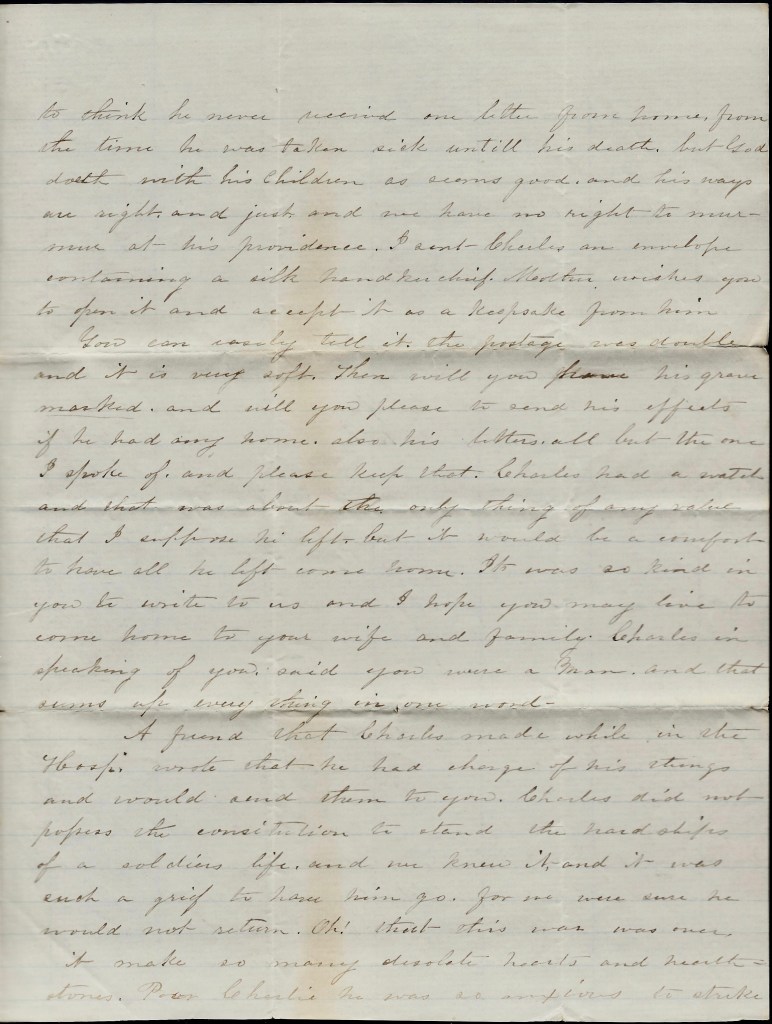 to think he never receivd one letter from home, from
the time he was taken sick untill his death. but God
doeth with his Children as seems good. and his ways
are right. and just. and we have no right to mur-
mur at his providence. I sent Charles an envelope
containing a silk handkerchief. Mother wishes you
to open it and accept it as a keepsake from him
You can easily tell it. the postage was double
and it is very soft. Then will you have his grave
marked. and will you please to send his effects
if he had any home. also his letters. all but the one
I spoke of. and please keep that. Charles had a watch
and that was about the only thing of any value
that I suppose he left. but it would be a comfort
to have all he left come home. It was so kind in
you to write to us and I hope you may live to
come home to your wife and family. Charles in
speaking of you. said you were a Man. and that
sums up every thing in one word-
A friend that Charles made while in the
Hosp. wrote that he had charge of his things
and would send them to you. Charles did not
possess the consitution to stand the hardships
of a soldiers life. and we knew it, and it was
such a grief to have him go. for we were sure he
would not return. Oh! that this war was over.
it make so many desolate hearts and hearth-
stones. Poor Charlie he was so anxious to strike